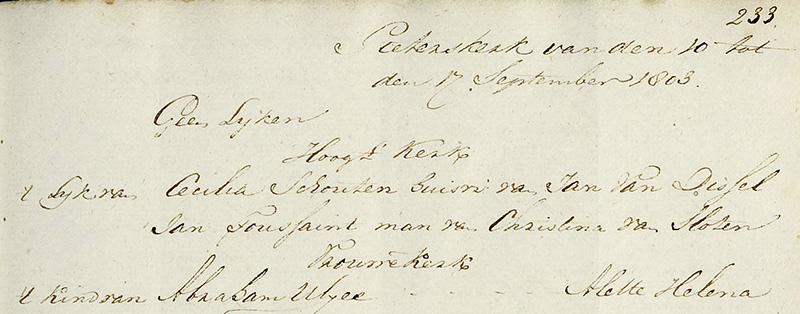 233.
Pieterskerk van den 10 tot
den 17 September 1803.
Geen Lyken
Hoogl. Kerk
't Lyk van Cecilia Schouten huisvr. van Jan Van Dissel
Jan Toussaint man van Christina van Sloten
Vrouwe Kerk
't Kind van Abraham - - - Alette Helena